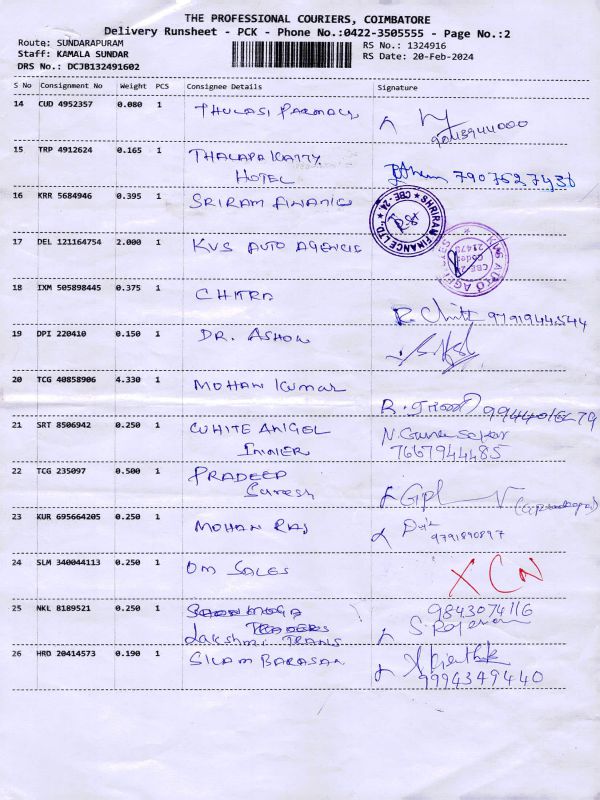 THE PROFESSIONAL COURIERS, COIMBATORE
Delivery Runsheet - PCK - Phone No.:0422-3505555 - Page No.:2
Route: SUNDARAPURAM
Staff: KAMALA SUNDAR
DRS No.: DCJB132491602
RS No.: 1324916
RS Date: 20-Feb-2024
S No Consignment No Weight PCS Consignee Details Signature
14 CUD 4952357 0.080 1 THULASI PARMACY
15 TRP 4912624 0.165 1 THALAPAKATTY
HOTEL 7907527436
16 KRR 5684946 0.395 1 SRIRAM FINANIS
SHRIRAM FINANCE LTD. CBE-24
17 DEL 121164754 2.000 1 KVS AUTO AGENCIE
18 IXM 505898445 0.375 1 CHITRA
R. Chitt 9791944544
19 DPI 220410 0.150 1 DR. ASHON
20 TCG 40858906 4.330 1 MOHAN KUMAR
21 SRT 8506942 0.250 1 WHITE ANGEL
INNER
7667944485
22 TCG 235097 0.500 1 PRADEEP
Suresh
23 KUR 695664205 0.250 1 MOHAN RAJ
9791890897
24 SLM 340044113 0.250 1 OM SALES XCN
25 NKL 8189521 0.250 1
TRADERS
Lakshmi TRANS
9843074116
26 HRD 20414573 0.190 1 SILAM BARASAN
9994349440